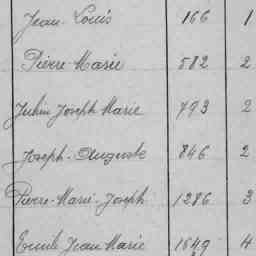 Jean-Louis 166 1
Pierre Marie 582 2
Julien Joseph Marie 793 2
Joseph-Auguste 846 2
Pierre-Marie-Joseph 1286 3
Emile Jean Marie 1649 4